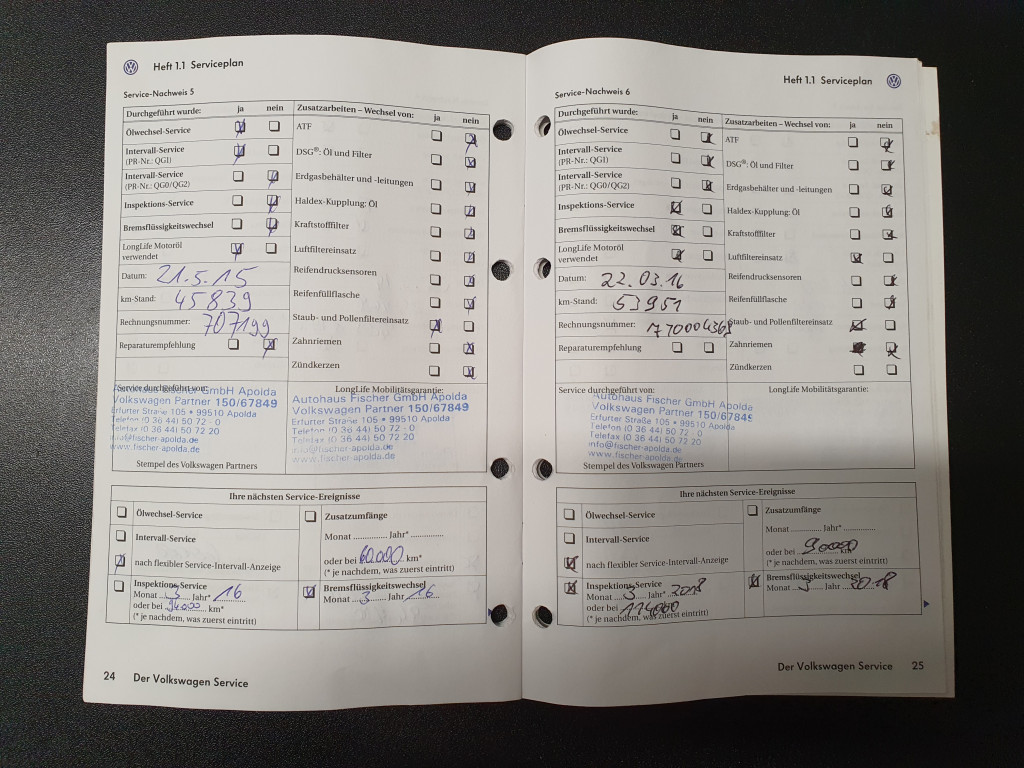 Heft 1.1 Serviceplan
Service-Nachweis 5
Durchgeführt wurde: ja nein
Ölwechsel-Service
Intervall-Service
(PR-Nr.: QG1)
Intervall-Service
(PR-Nr.: QG0/QG2)
Inspektions-Service
Bremsflüssigkeitswechsel
LongLife Motoröl
verwendet
Datum: 21.5.15
km-Stand: 45839
Rechnungsnummer: 707199
Reparaturempfehlung
Zusatzarbeiten – Wechsel von: ja nein
ATF
DSG®: Öl und Filter
Erdgasbehälter und -leitungen
Haldex-Kupplung: Öl
Kraftstofffilter
Luftfiltereinsatz
Reifendrucksensoren
Reifenfüllflasche
Staub- und Pollenfiltereinsatz
Zahnriemen
Zündkerzen
Service durchgeführt von:
Autohaus Fischer GmbH Apolda
Volkswagen Partner 150/67849
Erfurter Straße 105 • 99510 Apolda
Telefon (0 36 44) 50 72 - 0
Telefax (0 36 44) 50 72 20
info@fischer-apolda.de
www.fischer-apolda.de
Stempel des Volkswagen Partners
LongLife Mobilitätsgarantie:
Autohaus Fischer GmbH Apolda
Volkswagen Partner 150/67849
Erfurter Straße 105 • 99510 Apolda
Telefon (0 36 44) 50 72 - 0
Telefax (0 36 44) 50 72 20
info@fischer-apolda.de
www.fischer-apolda.de
Ihre nächsten Service-Ereignisse
Ölwechsel-Service
Intervall-Service
nach flexibler Service-Intervall-Anzeige
Inspektions-Service
Monat 3 Jahr* 16
oder bei 94000 km*
(* je nachdem, was zuerst eintritt)
Zusatzumfänge
Monat ............ Jahr* ..............
oder bei 60.000 km*
(* je nachdem, was zuerst eintritt)
Bremsflüssigkeitswechsel
Monat 3 Jahr 16
24 Der Volkswagen Service
Heft 1.1 Serviceplan
Service-Nachweis 6
Durchgeführt wurde: ja nein
Ölwechsel-Service
Intervall-Service
(PR-Nr.: QG1)
Intervall-Service
(PR-Nr.: QG0/QG2)
Inspektions-Service
Bremsflüssigkeitswechsel
LongLife Motoröl
verwendet
Datum: 22.03.16
km-Stand: 53951
Rechnungsnummer: 770004369
Reparaturempfehlung
Zusatzarbeiten – Wechsel von: ja nein
ATF
DSG®: Öl und Filter
Erdgasbehälter und -leitungen
Haldex-Kupplung: Öl
Kraftstofffilter
Luftfiltereinsatz
Reifendrucksensoren
Reifenfüllflasche
Staub- und Pollenfiltereinsatz
Zahnriemen
Zündkerzen
Service durchgeführt von:
Autohaus Fischer GmbH Apolda
Volkswagen Partner 150/67849
Erfurter Straße 105 • 99510 Apolda
Telefon (0 36 44) 50 72 - 0
Telefax (0 36 44) 50 72 20
info@fischer-apolda.de
www.fischer-apolda.de
Stempel des Volkswagen Partners
LongLife Mobilitätsgarantie:
Ihre nächsten Service-Ereignisse
Ölwechsel-Service
Intervall-Service
nach flexibler Service-Intervall-Anzeige
Inspektions-Service
Monat 3 Jahr* 2018
oder bei 114000 km*
(* je nachdem, was zuerst eintritt)
Zusatzumfänge
Monat ............ Jahr* ..............
oder bei 90000 km*
(* je nachdem, was zuerst eintritt)
Bremsflüssigkeitswechsel
Monat 3 Jahr 2018
Der Volkswagen Service 25